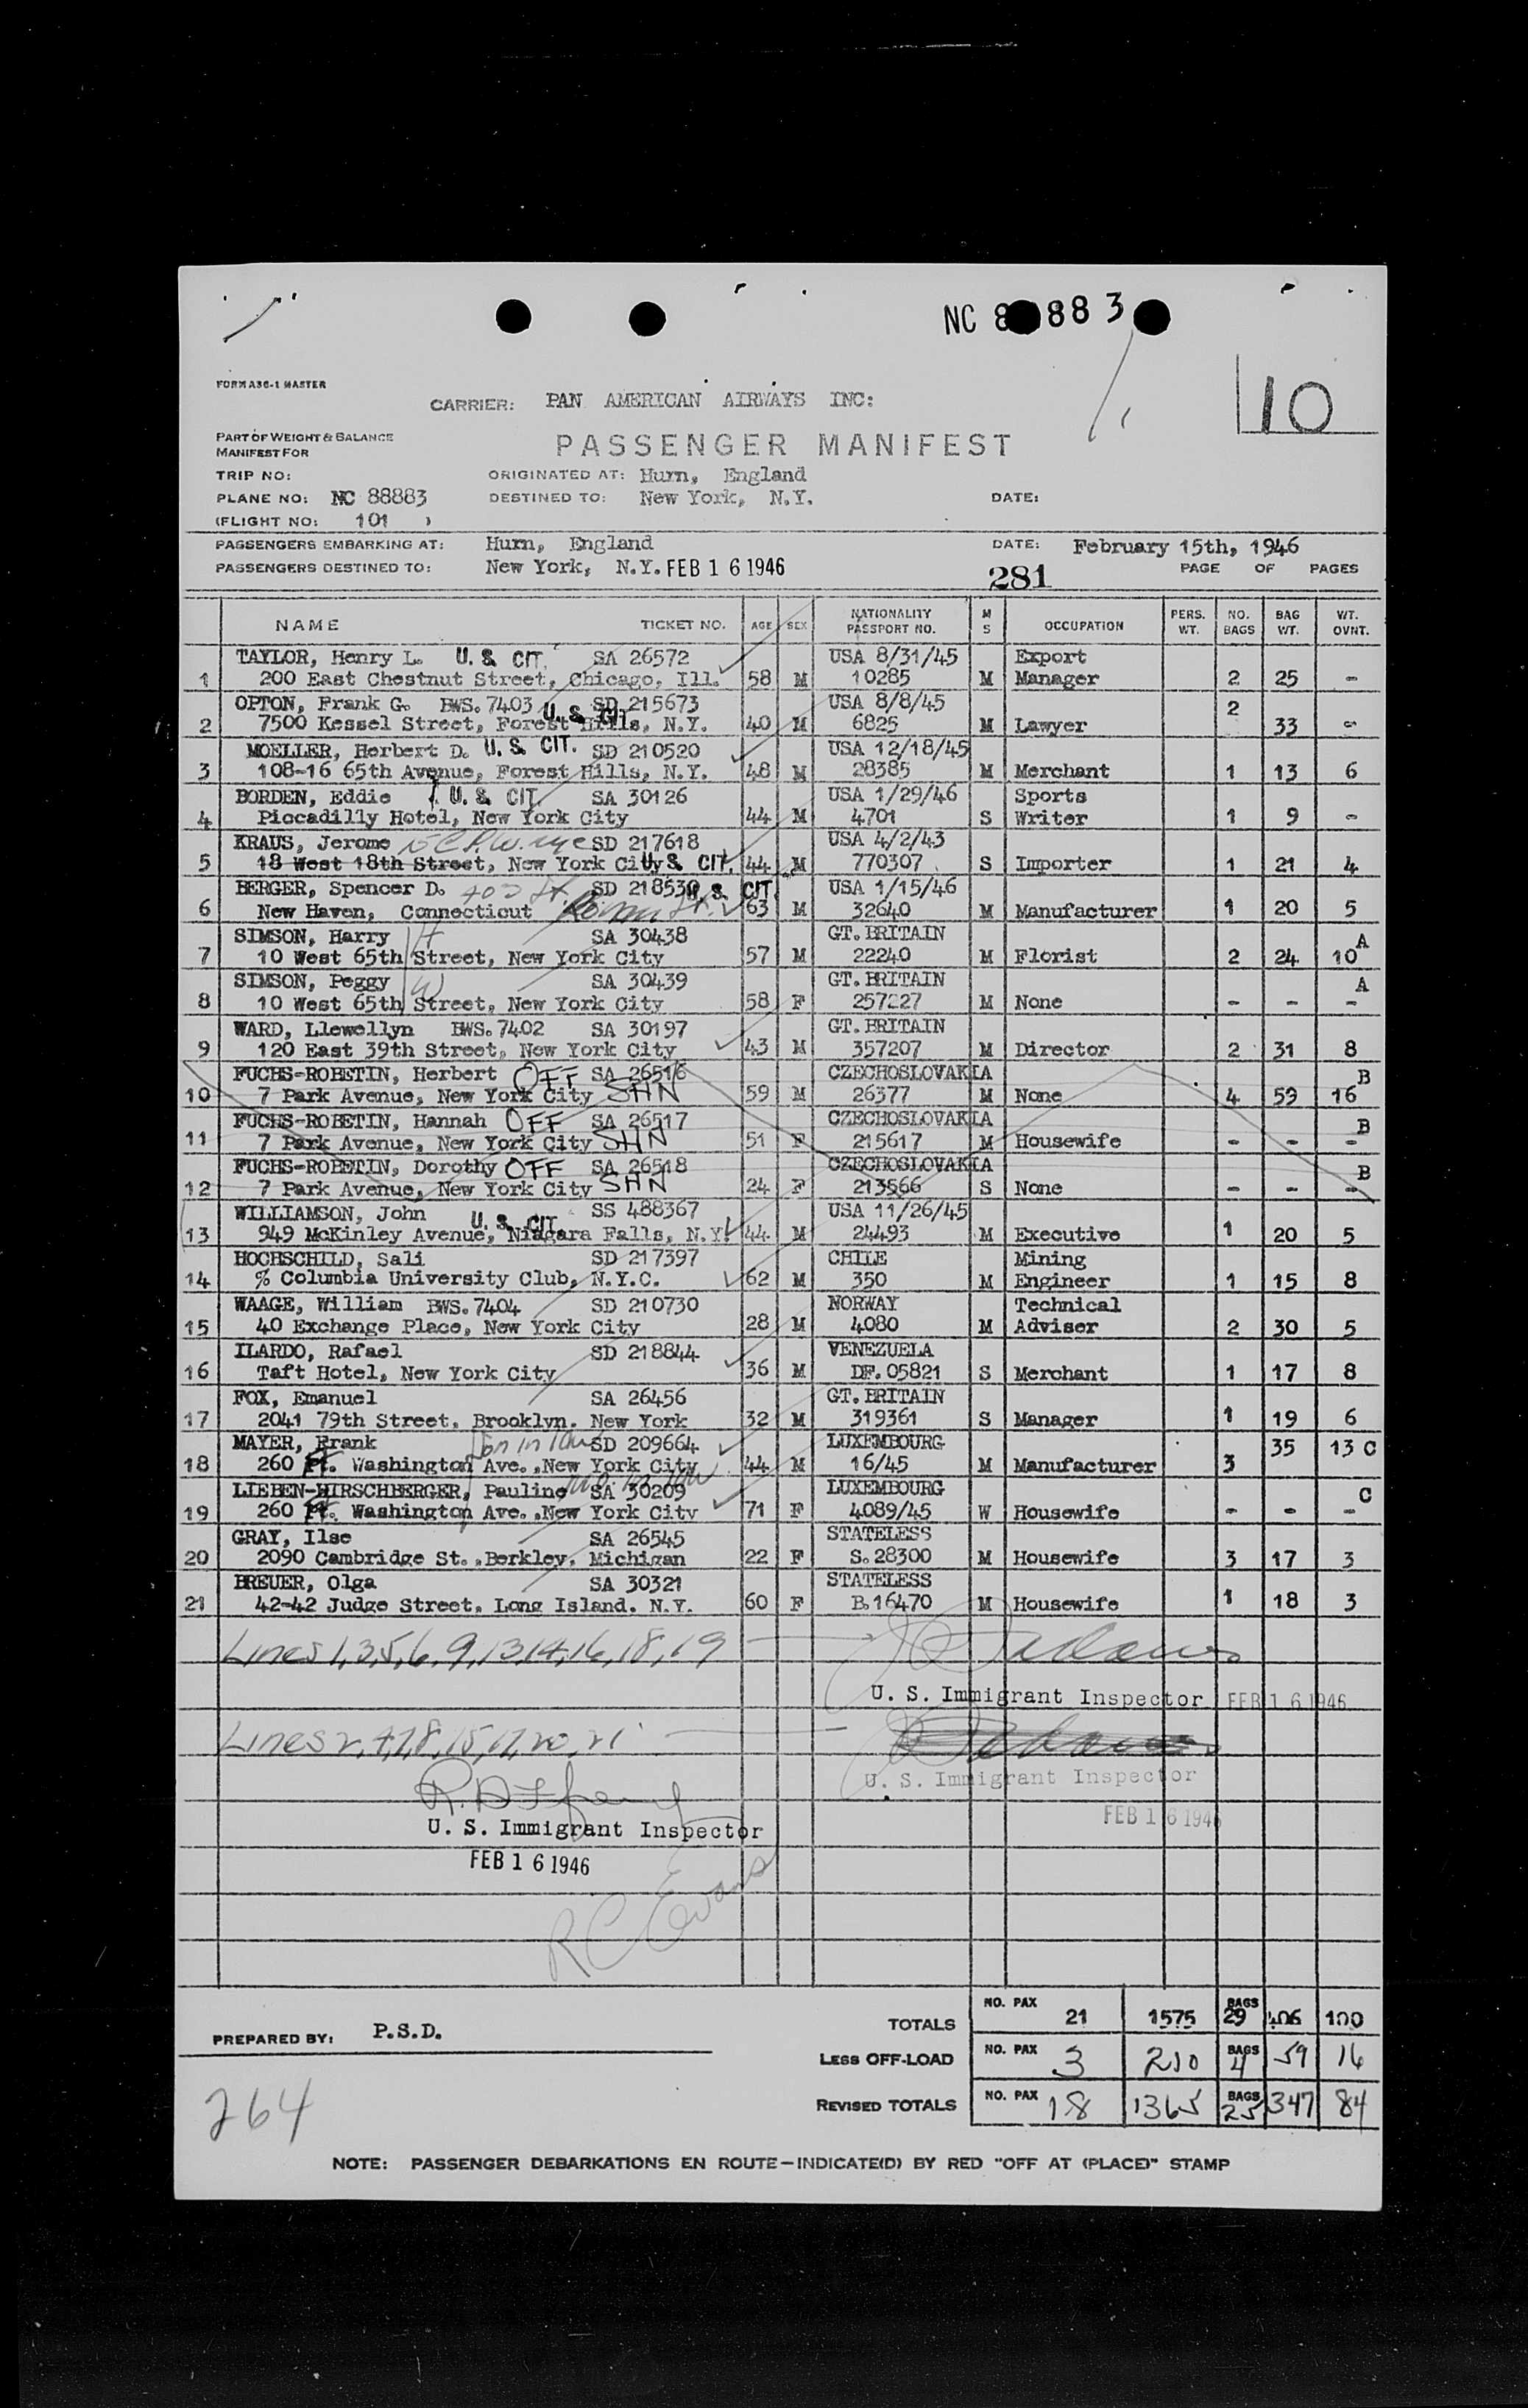 NC 8 883
10
FORM A36-1 MASTER
CARRIER: PAN AMERICAN AIRWAYS INC:
PART OF WEIGHT & BALANCE
MANIFEST FOR
PASSENGER MANIFEST
TRIP NO:
ORIGINATED AT: Hurn, England
PLANE NO: NC 88883 DESTINED TO: New York, N.Y. DATE:
(FLIGHT NO: 101 )
PASSENGERS EMBARKING AT: Hurn, England DATE: February 15th, 1946
PASSENGERS DESTINED TO: New York, N.Y. FEB 16 1946 281 PAGE OF PAGES
NAME TICKET NO. AGE SEX NATIONALITY PASSPORT NO. M S OCCUPATION PERS. WT. NO. BAGS BAG WT. WT. OVNT.
TAYLOR, Henry L. U. S. CIT. SA 26572 USA 8/31/45 Export
1 200 East Chestnut Street, Chicago, Ill. 58 M 10285 M Manager 2 25 -
OPTON, Frank G. BWS. 7403 U. S. CIT. SD 215673 USA 8/8/45 2
2 7500 Kessel Street, Forest Hills, N.Y. 40 M 6825 M Lawyer 33 -
MOELLER, Herbert D. U. S. CIT. SD 210520 USA 12/18/45
3 108-16 65th Avenue, Forest Hills, N.Y. 48 M 28385 M Merchant 1 13 6
BORDEN, Eddie U. S. CIT. SA 30126 USA 1/29/46 Sports
4 Piccadilly Hotel, New York City 44 M 4701 S Writer 1 9 -
KRAUS, Jerome SD 217618 USA 4/2/43
5 18 West 18th Street, New York City U. S. CIT. 44 M 770307 S Importer 1 21 4
BERGER, Spencer D. SD 218530 U. S. CIT. USA 1/15/46
6 New Haven, Connecticut 63 M 32640 M Manufacturer 1 20 5
SIMSON, Harry H SA 30438 GT. BRITAIN A
7 10 West 65th Street, New York City 57 M 22240 M Florist 2 24 10
SIMSON, Peggy W SA 30439 GT. BRITAIN A
8 10 West 65th Street, New York City 58 F 257227 M None - - -
WARD, Llewellyn BWS. 7402 SA 30197 GT. BRITAIN
9 120 East 39th Street, New York City 43 M 357207 M Director 2 31 8
FUCHS-ROBETIN, Herbert OFF SA 26516 CZECHOSLOVAKIA B
10 7 Park Avenue, New York City SHN 59 M 26377 M None 4 59 16
FUCHS-ROBETIN, Hannah OFF SA 26517 CZECHOSLOVAKIA B
11 7 Park Avenue, New York City SHN 51 F 215617 M Housewife - - -
FUCHS-ROBETIN, Dorothy OFF SA 26518 CZECHOSLOVAKIA B
12 7 Park Avenue, New York City SHN 24 F 213566 S None - - -
WILLIAMSON, John U. S. CIT. SS 488367 USA 11/26/45
13 949 McKinley Avenue, Niagara Falls, N.Y. 44 M 24493 M Executive 1 20 5
HOCHSCHILD, Sali SD 217397 CHILE Mining
14 % Columbia University Club, N.Y.C. 62 M 350 M Engineer 1 15 8
WAAGE, William BWS. 7404 SD 210730 NORWAY Technical
15 40 Exchange Place, New York City 28 M 4080 M Adviser 2 30 5
ILARDO, Rafael SD 218844 VENEZUELA
16 Taft Hotel, New York City 36 M DF. 05821 S Merchant 1 17 8
FOX, Emanuel SA 26456 GT. BRITAIN
17 2041 79th Street, Brooklyn. New York 32 M 319361 S Manager 1 19 6
MAYER, Frank Son in law SD 209664 LUXEMBOURG 35 13 C
18 260 Ft. Washington Ave.,New York City 44 M 16/45 M Manufacturer 3
LIEBEN-HIRSCHBERGER, Pauline SA 30209 LUXEMBOURG C
19 260 Ft. Washington Ave.,New York City 71 F 4089/45 W Housewife - - -
GRAY, Ilse SA 26545 STATELESS
20 2090 Cambridge St.,Berkley, Michigan 22 F S. 28300 M Housewife 3 17 3
BREUER, Olga SA 30321 STATELESS
21 42-42 Judge Street, Long Island. N.Y. 60 F B. 16470 M Housewife 1 18 3
Lines 1,3,5,6,9,13,14,16,18,19
U. S. Immigrant Inspector FEB 16 1946
Lines 2,4,7,8,15,17,20,21
U. S. Immigrant Inspector
FEB 16 1946
U. S. Immigrant Inspector
FEB 16 1946
R C Evans
TOTALS NO. PAX 21 1575 BAGS 29 406 100
PREPARED BY: P.S.D.
LESS OFF-LOAD NO. PAX 3 210 BAGS 4 59 16
REVISED TOTALS NO. PAX 18 1365 BAGS 25 347 84
264
NOTE: PASSENGER DEBARKATIONS EN ROUTE—INDICATE(D) BY RED "OFF AT (PLACE)" STAMP